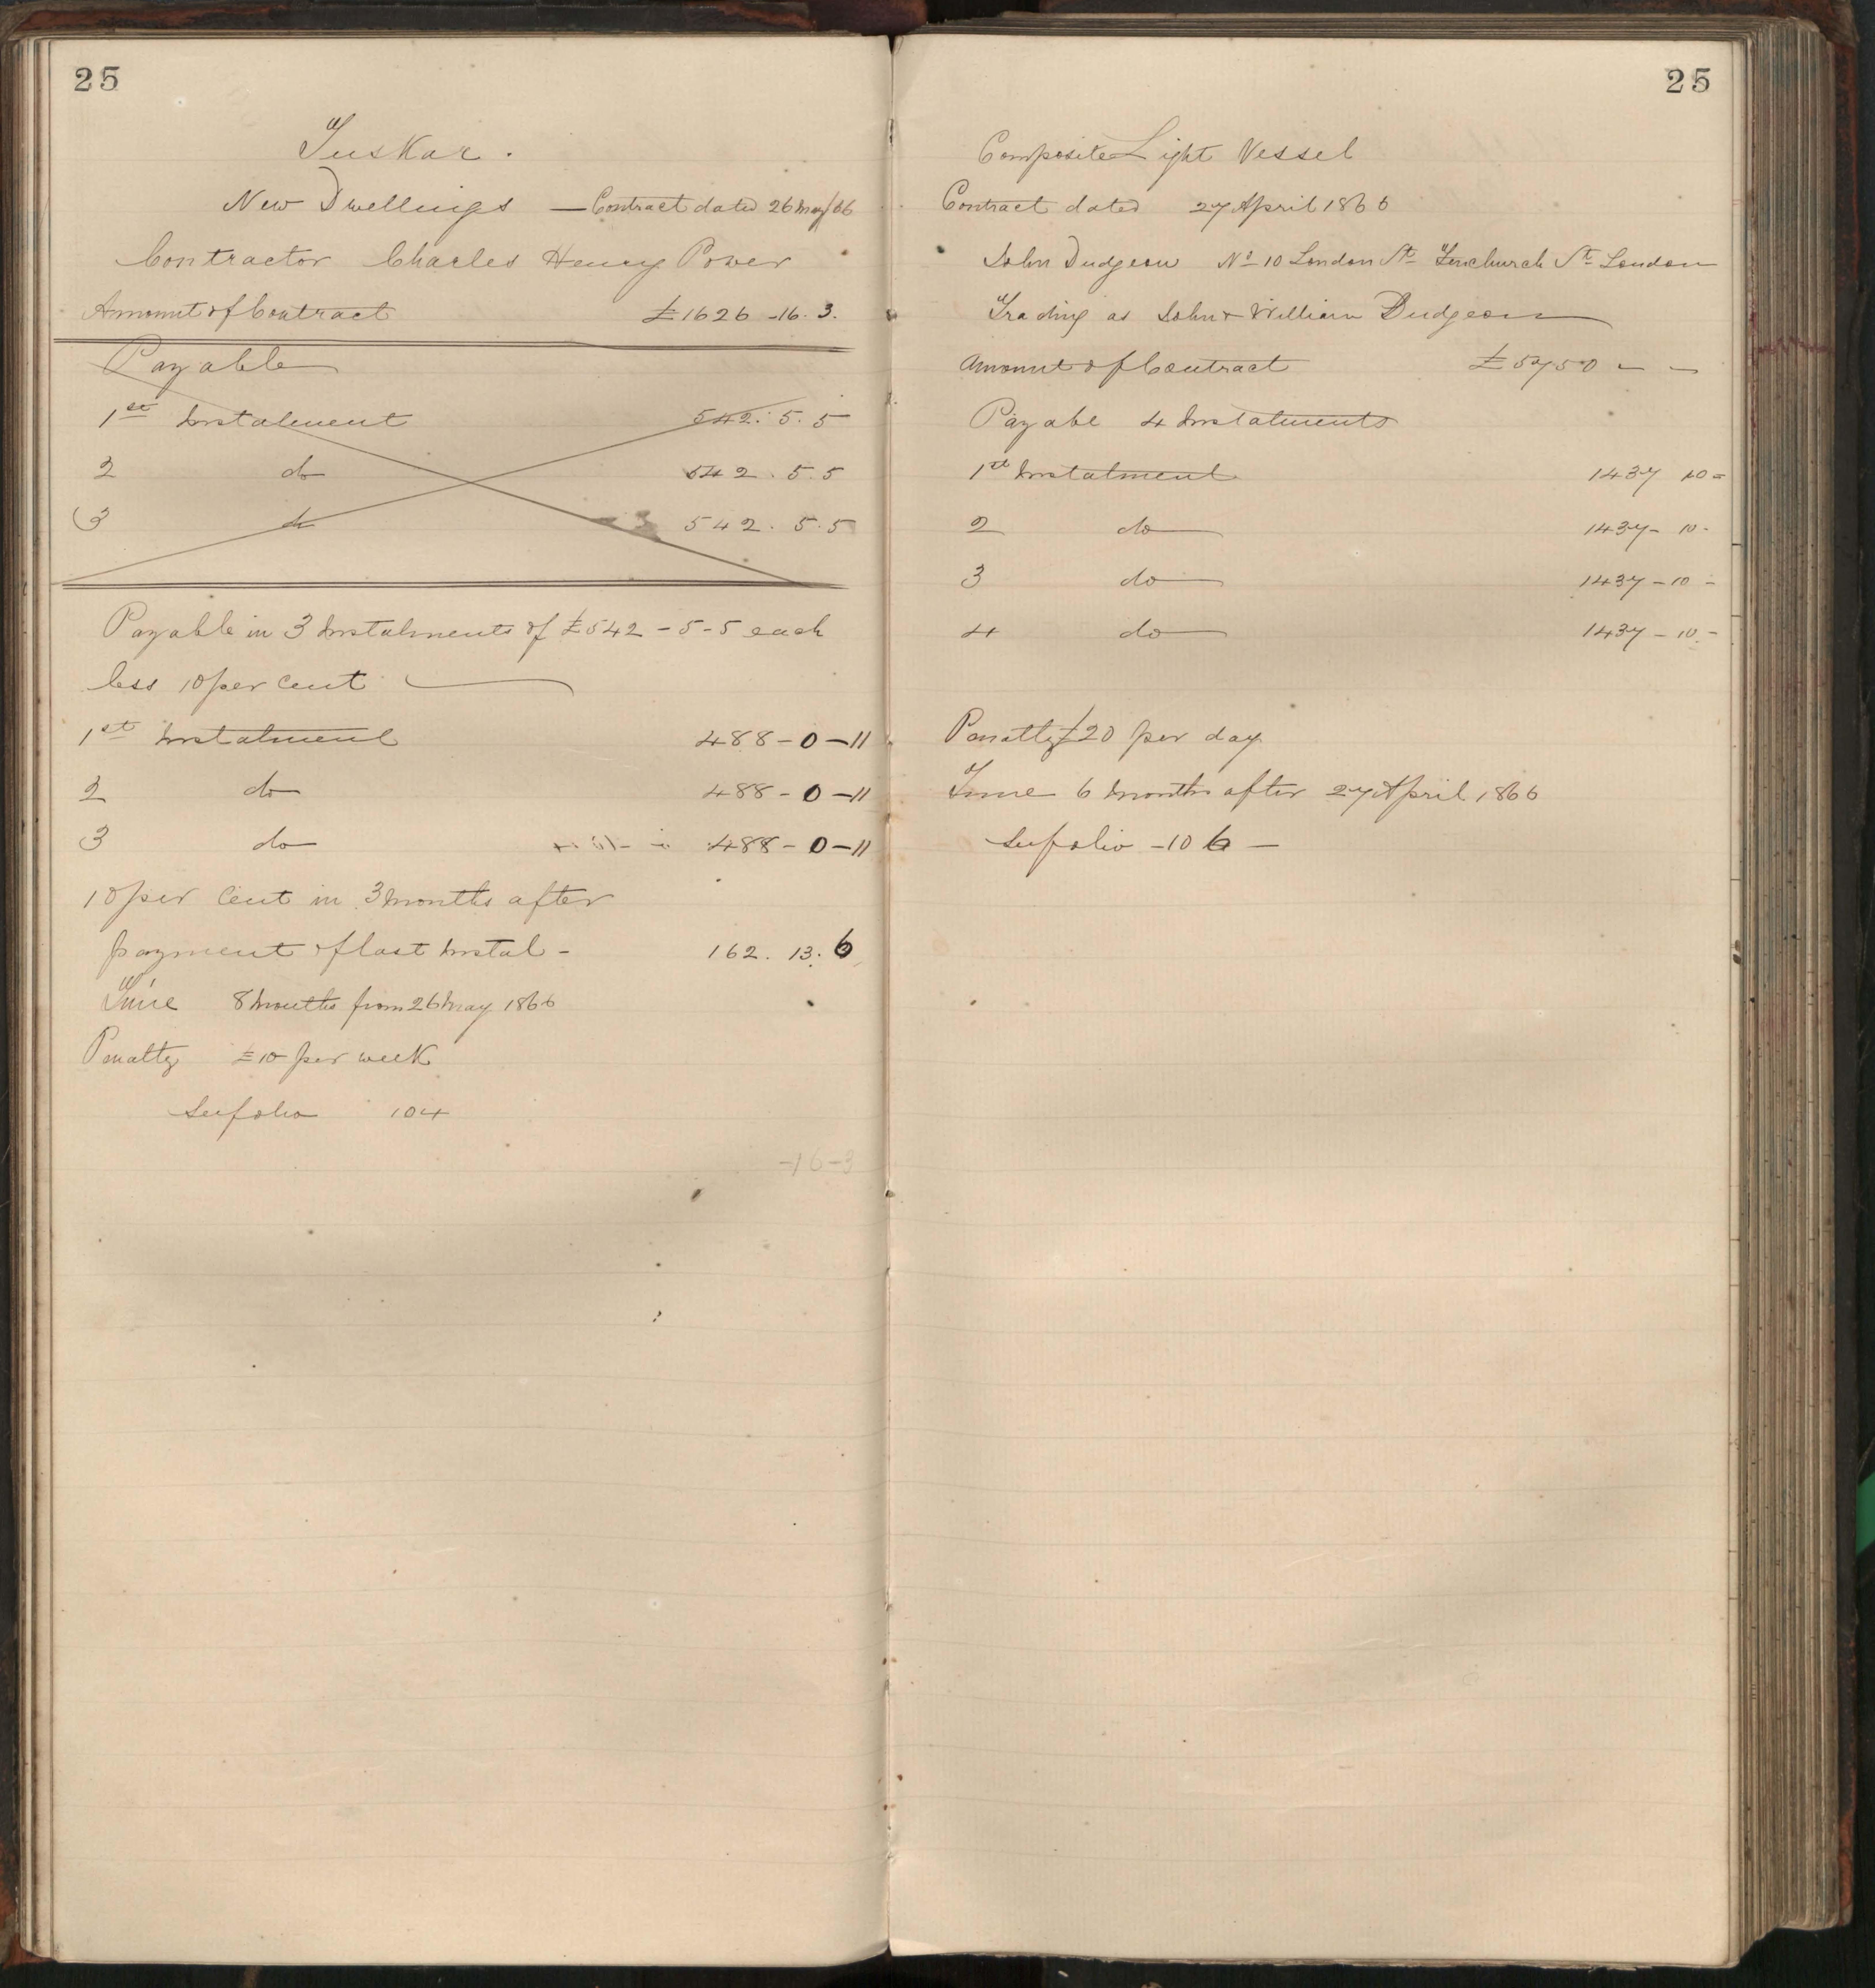 25
Tuskar.
New Dwellings — Contract dated 26 May/66
Contractor Charles Henry Power
Amount of Contract £1626-16.3.
Payable
1st Instalment 542.5.5
2 do 542.5.5
3 do 542.5.5
Payable in 3 Instalments of £542-5-5 each
less 10 per cent
1st Instalment 488-0-11
2 do 488-0-11
3 do 488-0-11
10 per Cent in 3 months after
payment of last Instal- 162.13.6
Time 8 Months from 26 May 1866
Penalty £10 per week
See folio 104
-16-3
25
Composite Light Vessel
Contract dated 27 April 1866
John Dudgeon No 10 London St Fenchurch St London
Trading as John & William Dudgeon
Amount of Contract £5750 - -
Payabe 4 Instalments
1st Instalment 1437 10 =
2 do 1437-10-
3 do 1437-10-
4 do 1437-10-
Penalty £20 per day
Time 6 Months after 27 April 1866
See folio -106-